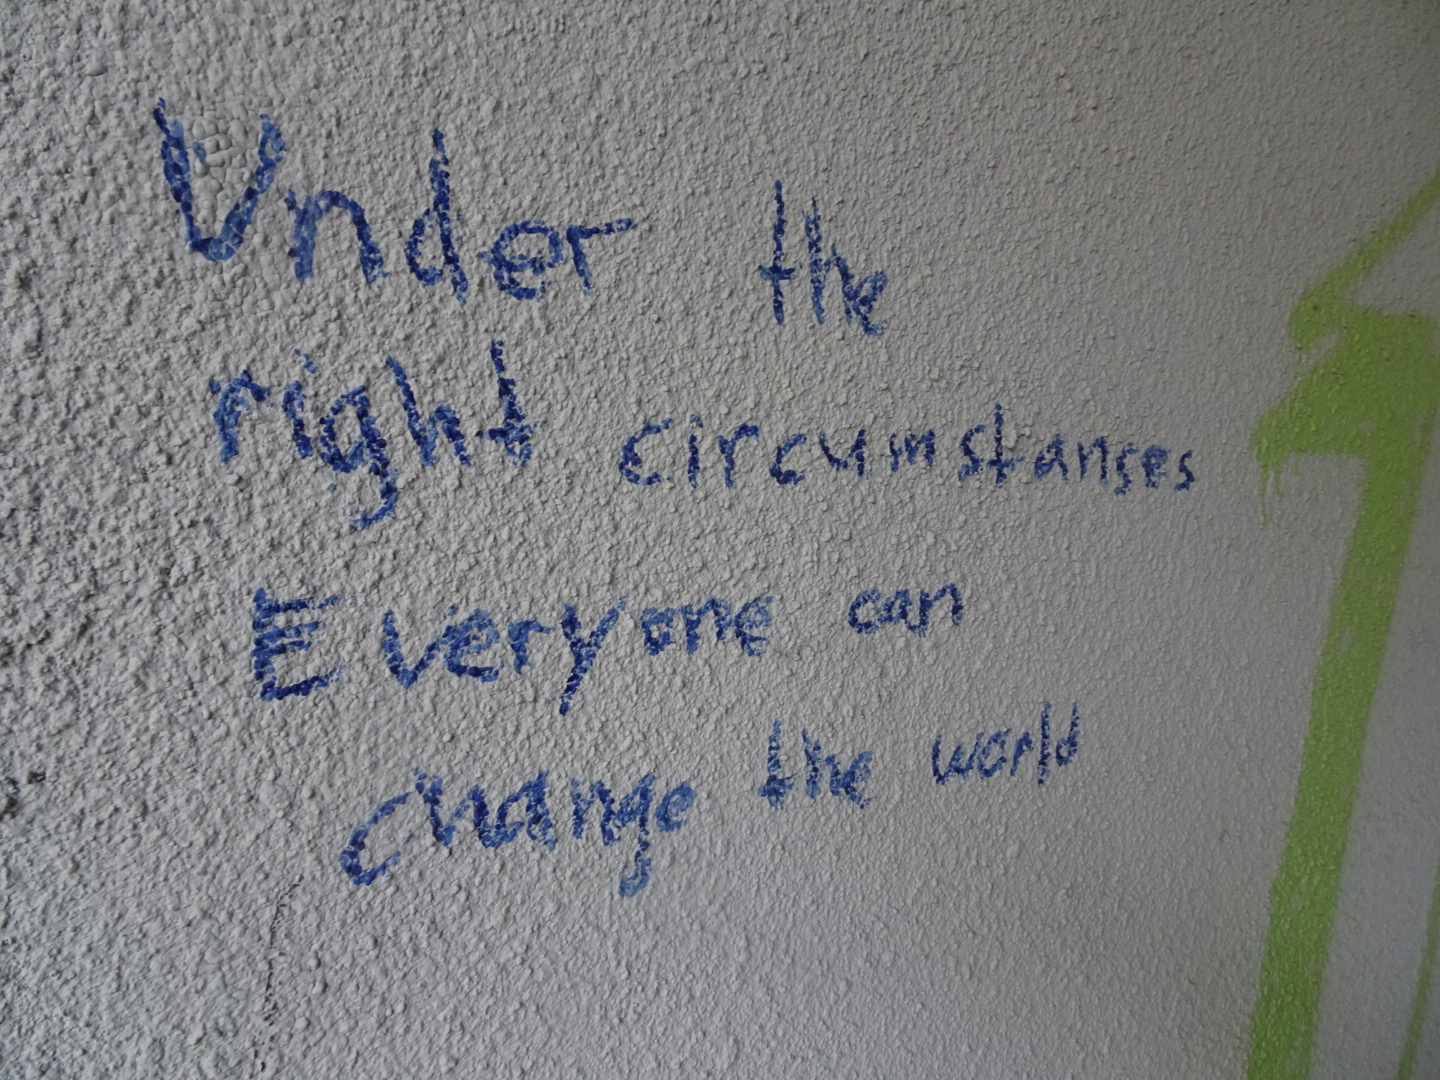 Under the
right circumstanses
Everyone can
change the world